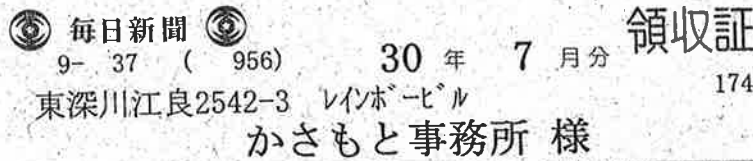 毎日新聞
領収証
9- 37 ( 956) 30 年 7 月分
174
東深川江良2542-3 レインボービル
かさもと事務所 様